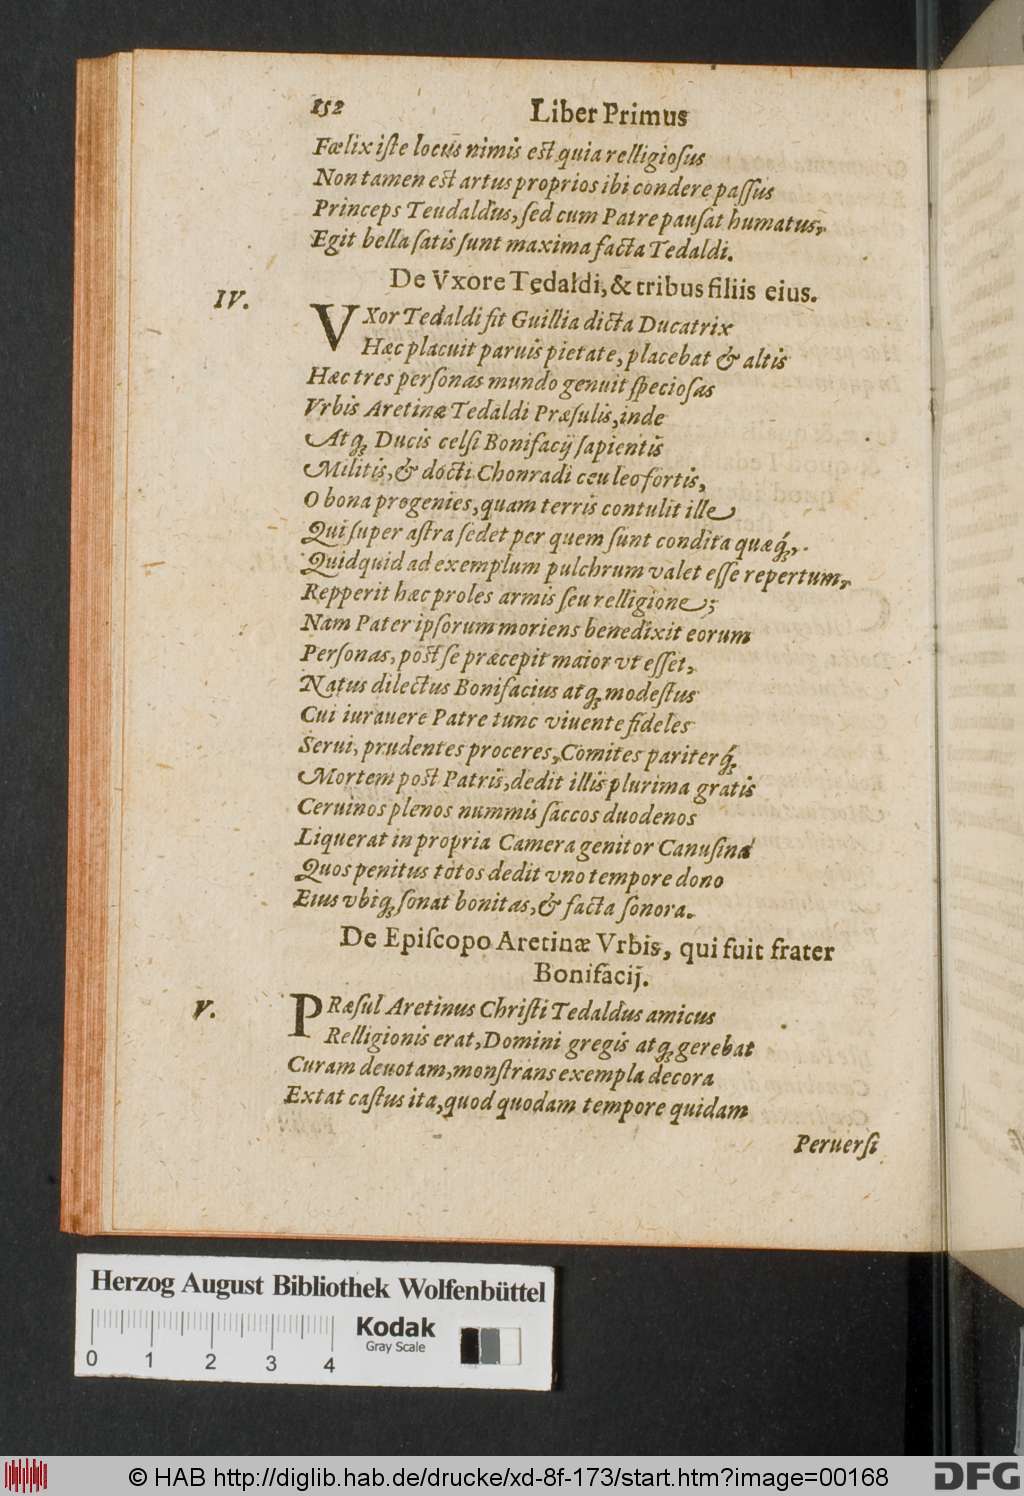 152 Liber Primus
Fœlix iſte locus nimis est quia relligioſus
Non tamen est artus proprios ibi condere paſſus
Princeps Teudaldus, ſed cum Patre pauſat humatus,
Egit bella ſatis ſunt maxima facta Tedaldi.
De Vxore Tedaldi, & tribus filiis eius.
IV.
VXor Tedaldi fit Guillia dicta Ducatrix
Hæc placuit paruis pietate, placebat & altis
Hæc tres perſonas mundo genuit ſpecioſas
Vrbis Aretinæ Tedaldi Præſulis, inde
Atq; Ducis celſi Bonifacij ſapientis
Militis, & docti Chonradi ceu leo fortis,
O bona progenies, quam terris contulit ille
Qui ſuper aſtra ſedet per quem ſunt condita quæq́;,
Quidquid ad exemplum pulchrum valet eſſe repertum,
Repperit hæc proles armis ſeu relligione;
Nam Pater ipſorum moriens benedixit eorum
Perſonas, post ſe præcepit maior vt eſſet,
Natus dilectus Bonifacius atq; modeſtus
Cui iurauere Patre tunc viuente fideles
Serui, prudentes proceres, Comites pariterq́;
Mortem post Patris, dedit illis plurima gratis
Ceruinos plenos nummis ſaccos duodenos
Liquerat in propria Camera genitor Canuſina
Quos penitus totos dedit vno tempore dono
Eius vbiq; ſonat bonitas, & facta ſonora.
De Epiſcopo Aretinæ Vrbis, qui fuit frater
Bonifacij.
V.
PRæſul Aretinus Chriſti Tedaldus amicus
Relligionis erat, Domini gregis atq; gerebat
Curam deuotam, monſtrans exempla decora
Extat caſtus ita, quod quodam tempore quidam
Peruerſi
Herzog August Bibliothek Wolfenbüttel
Kodak
Gray Scale
0 1 2 3 4
© HAB http://diglib.hab.de/drucke/xd-8f-173/start.htm?image=00168
DFG